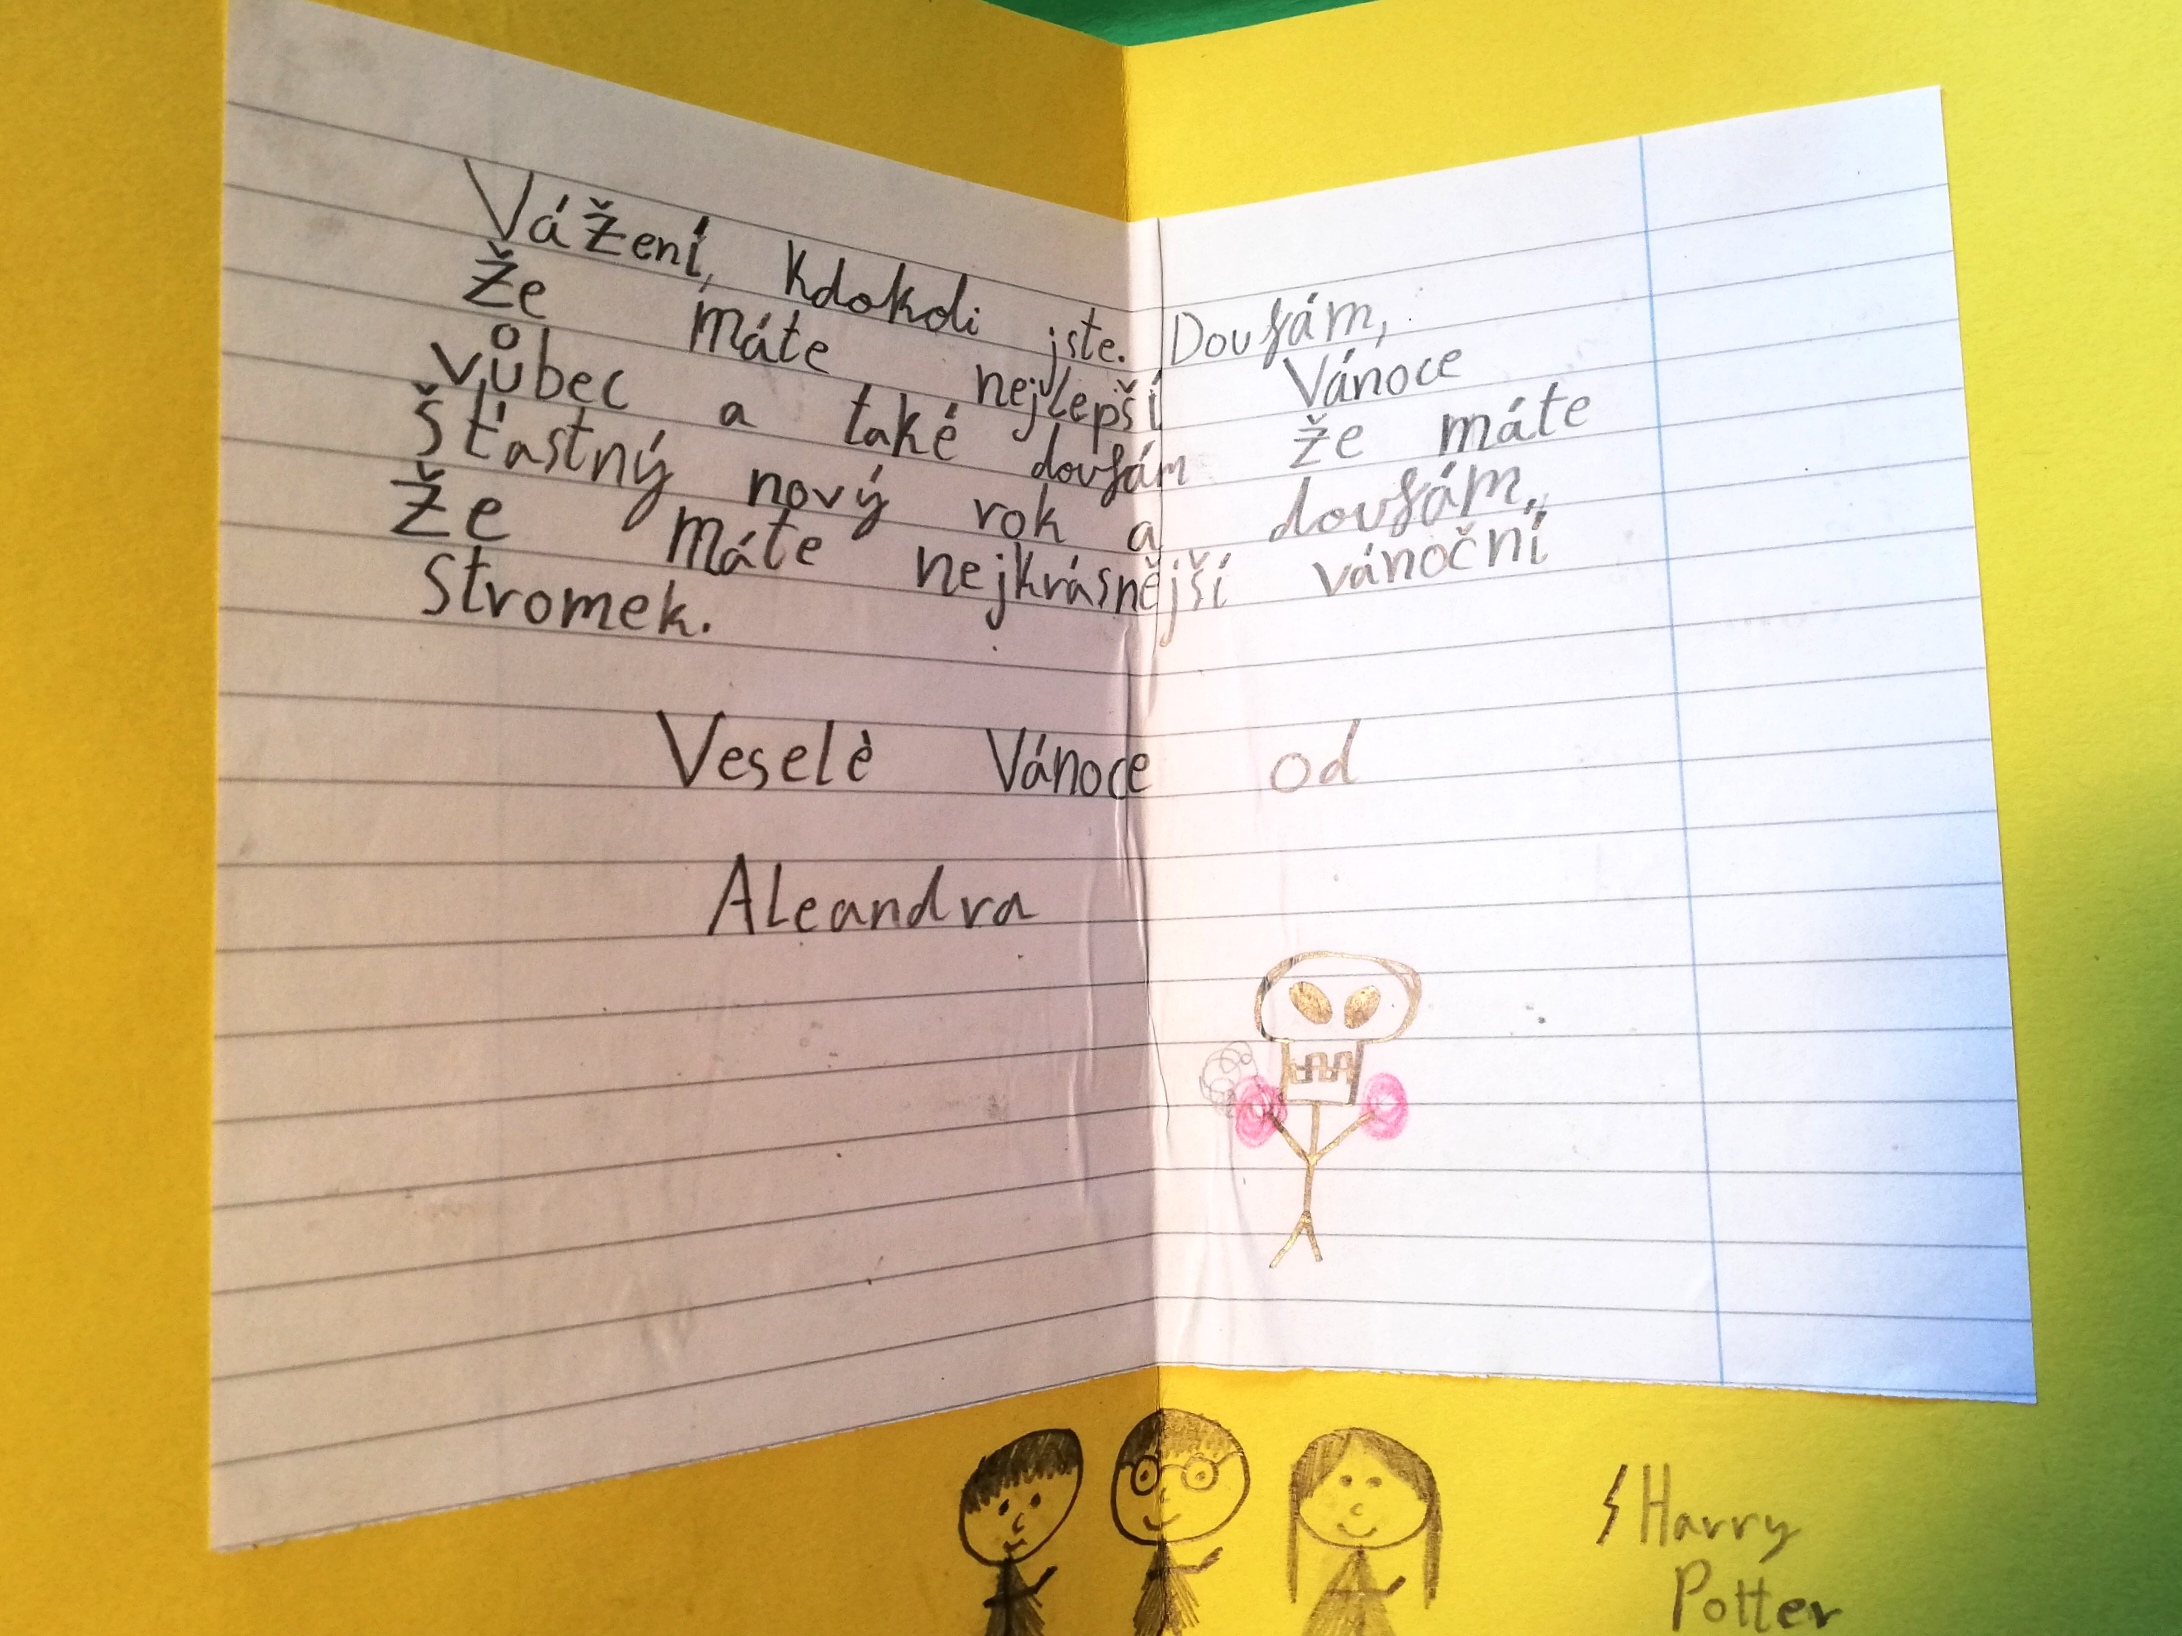 Vážení, kdokoli jste. Doufám,
že máte nejlepší Vánoce
vůbec a také doufám že máte
šťastný nový rok a doufám,
že máte nejkrásnější vánoční
stromek.
Veselè Vánoce od
Aleandra
Harry
Potter